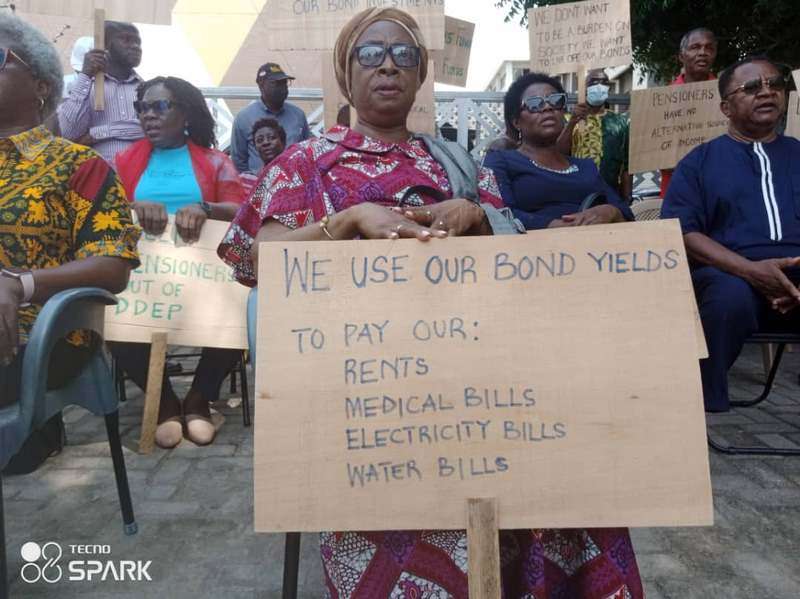 OUR BOND INVESTMENTS
WE DON'T WANT
TO BE A BURDEN ON
SOCIETY WE WANT
TO LIVE OFF OUR BONDS
PENSIONERS
HAVE NO
ALTERNATIVE
OF INCOME
PENSIONERS
OUT OF
DDEP
WE USE OUR BOND YIELDS
TO PAY OUR:
RENTS
MEDICAL BILLS
ELECTRICITY BILLS
WATER BILLS
TECNO
SPARK